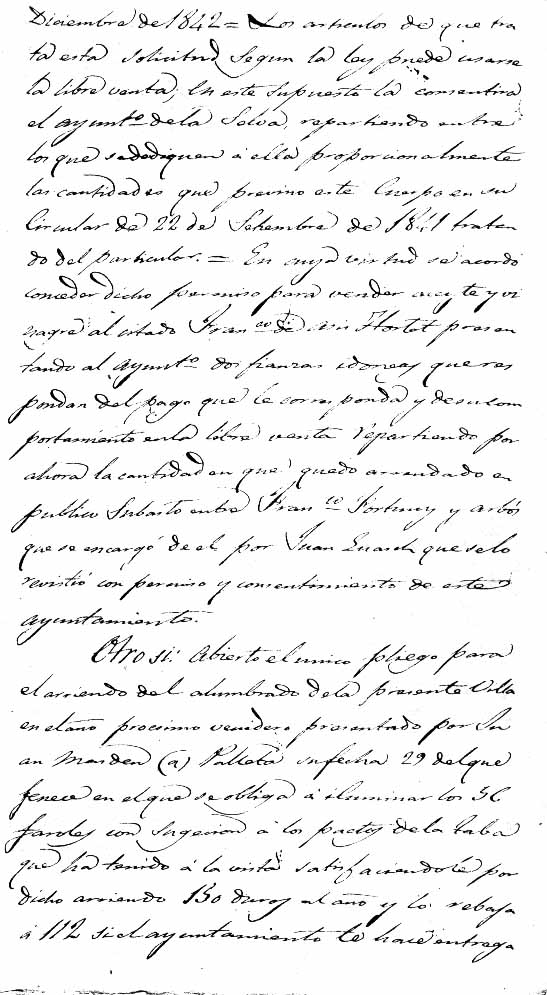 Diciembre de 1842 = Los articulos de que tra
ta esta solicitud segun la ley puede usarse
la libre venta; En este supuesto la consentira
el ayunt.º de la Selva, repartiendo entre
los que se dediquen á ella proporcionalmente
las cantidades que previno este Cuerpo en su
Circular de 22 de Setiembre de 1841 tratan
do del particular. = En cuya virtud se acordó
conceder dicho permiso para vender aceyte y vi
nagre al citado Fran.co de Asis Hortet presen
tando al Ayunt.º dos fianzas idoneas que res
pondan del pago que le corresponda y de su com
portamiento en la libre venta repartiendo por
ahora la cantidad en que quedo arrendado en
publico Subasto entre Fran.co Fortuny y Arbós
que se encargó de el por Juan Guasch que se lo
revistió con permiso y consentimiento de este
ayuntamiento.
Otro si: Abierto el unico pliego para
el arriendo del alumbrado de la presente Villa
en el año procsimo venidero presentado por Ju
an Masdeu (a) Palleta su fecha 29 del que
fenece en el que se obliga á iluminar los 36
faroles con sugecion á los pactos de la taba
que ha tenido á la vista satisfaciendole por
dicho arriendo 130 duros al año y lo rebaja
á 112 si el ayuntamiento le hace entrega